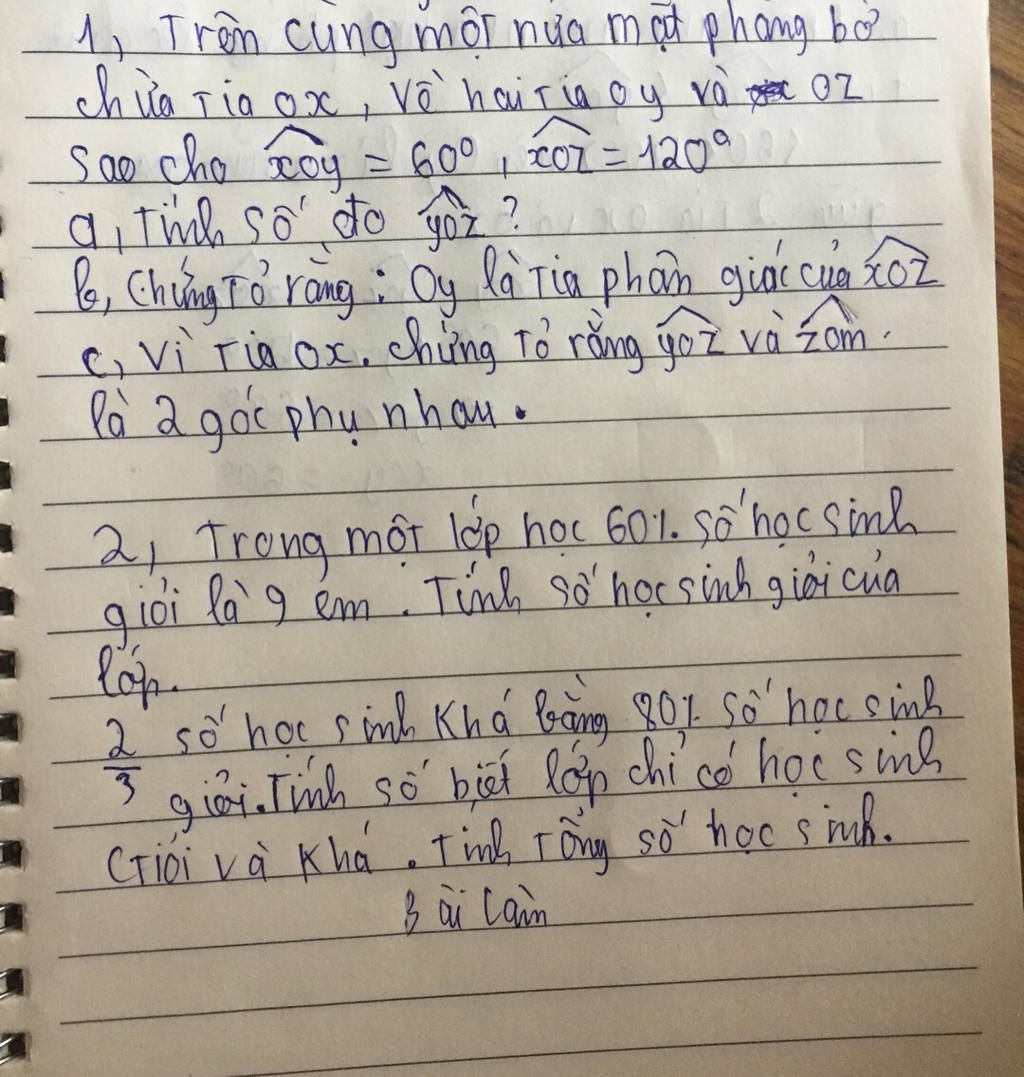 1, Trên cùng một nửa mặt phẳng bờ
chứa tia ox, vẽ hai tia oy và oz
sao cho xoy = 60⁰, xoz = 120⁰
a, Tính số đo yoz ?
b, Chứng tỏ rằng : Oy là tia phân giác của xoz
c, vì tia ox. chứng tỏ rằng yoz và zom.
là 2 góc phụ nhau.
2, Trong một lớp học 60% số học sinh
giỏi là 9 em. Tính số học sinh giỏi của
lớp.
2/3 số học sinh Khá bằng 80% số học sinh
giỏi. Tính số biết lớp chỉ có học sinh
Giỏi và Khá. Tính Tổng số học sinh.
Bài Làm